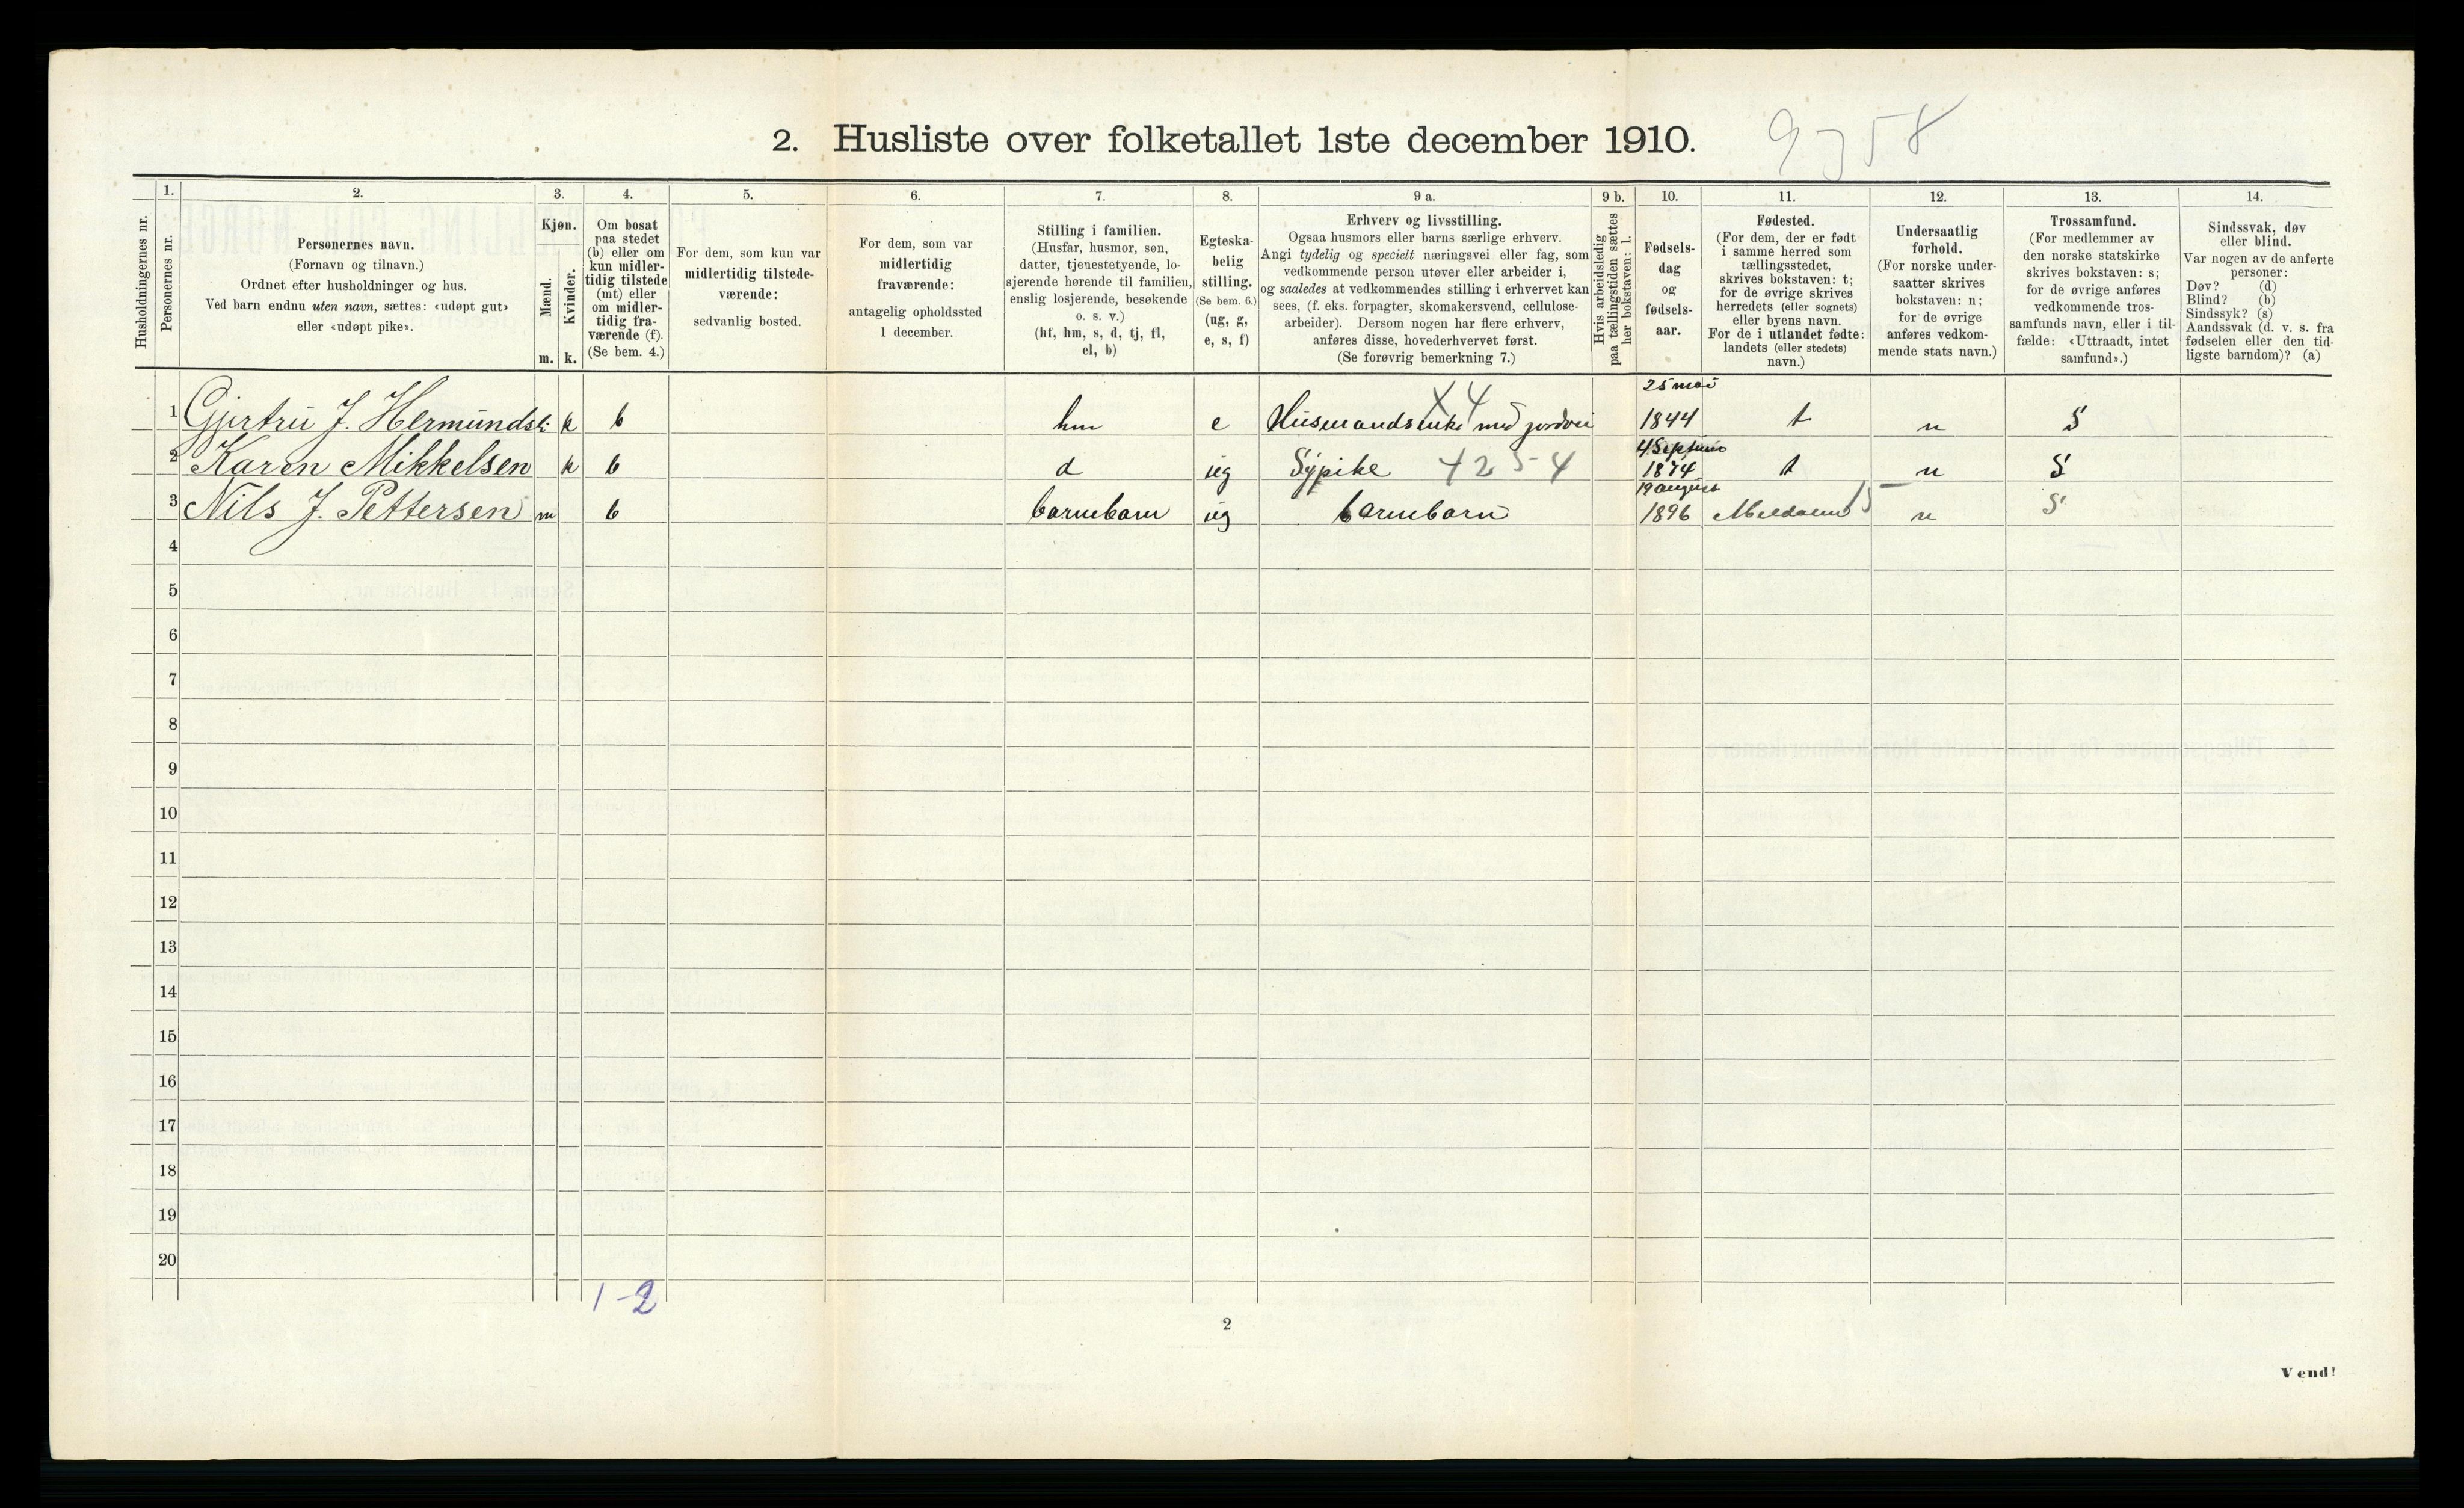 2. Husliste over folketallet 1ste december 1910.
9358
Husholdningernes nr.
1.
Personernes nr.
2.
Personernes navn.
(Fornavn og tilnavn.)
Ordnet efter husholdninger og hus.
Ved barn endnu uten navn, sættes: «udøpt gut»
eller «udøpt pike».
3.
Kjøn.
Mænd.
m.
Kvinder.
k.
4.
Om bosat
paa stedet
(b) eller om
kun midler-
tidig tilstede
(mt) eller
om midler-
tidig fra-
værende (f).
(Se bem. 4.)
5.
For dem, som kun var
midlertidig tilstede-
værende:
sedvanlig bosted.
6.
For dem, som var
midlertidig
fraværende:
antagelig opholdssted
1 december.
7.
Stilling i familien.
(Husfar, husmor, søn,
datter, tjenestetyende, lo-
sjerende hørende til familien,
enslig losjerende, besøkende
o. s. v.)
(hf, hm, s, d, tj, fl,
el, b)
8.
Egteska-
belig
stilling.
(Se bem. 6.)
(ug, g,
e, s, f)
9 a.
Erhverv og livsstilling.
Ogsaa husmors eller barns særlige erhverv.
Angi tydelig og specielt næringsvei eller fag, som
vedkommende person utøver eller arbeider i,
og saaledes at vedkommendes stilling i erhvervet kan
sees, (f. eks. forpagter, skomakersvend, cellulose-
arbeider). Dersom nogen har flere erhverv,
anføres disse, hovederhvervet først.
(Se forøvrig bemerkning 7.)
9 b.
Hvis arbeidsledig
paa tællingstiden sættes
her bokstaven: l.
10.
Fødsels-
dag
og
fødsels-
aar.
11.
Fødested.
(For dem, der er født
i samme herred som
tællingsstedet,
skrives bokstaven: t;
for de øvrige skrives
herredets (eller sognets)
eller byens navn.
For de i utlandet fødte:
landets (eller stedets)
navn.)
12.
Undersaatlig
forhold.
(For norske under-
saatter skrives
bokstaven: n;
for de øvrige
anføres vedkom-
mende stats navn.)
13.
Trossamfund.
(For medlemmer av
den norske statskirke
skrives bokstaven: s;
for de øvrige anføres
vedkommende tros-
samfunds navn, eller i til-
fælde: «Uttraadt, intet
samfund».)
14.
Sindssvak, døv
eller blind.
Var nogen av de anførte
personer:
Døv? (d)
Blind? (b)
Sindssyk? (s)
Aandssvak (d. v. s. fra
fødselen eller den tid-
ligste barndom)? (a)
X4
25 mai
1 Gjertru J. Hermundsli k b hm e Husmandsenke med jordvei 1844 t n S
4 Septem
2 Karen Mikkelsen k b d ug Sypike 4254 1874 t n S
19 august
3 Nils J. Pettersen m b barnebarn ug barnebarn 1896 Meldalen 15 n S
4
5
6
7
8
9
10
11
12
13
14
15
16
17
18
19
20
1-2
2
Vend!